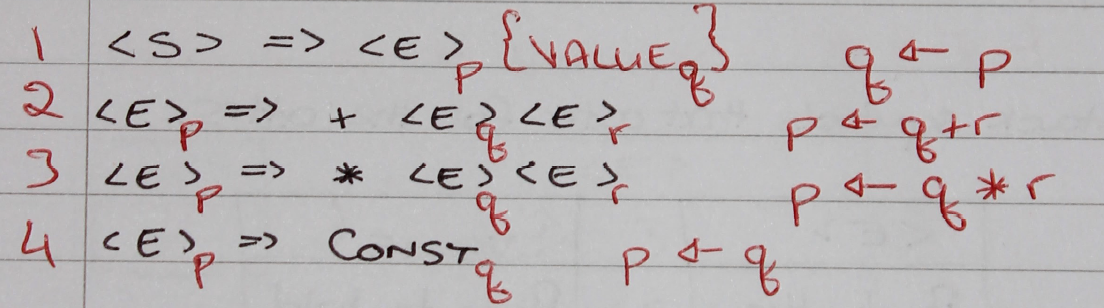 1 <S> => <E>p {VALUEq} q ← p
2 <E>p => + <E>q <E>r p ← q+r
3 <E>p => * <E>q <E>r p ← q * r
4 <E>p => CONSTq p ← q